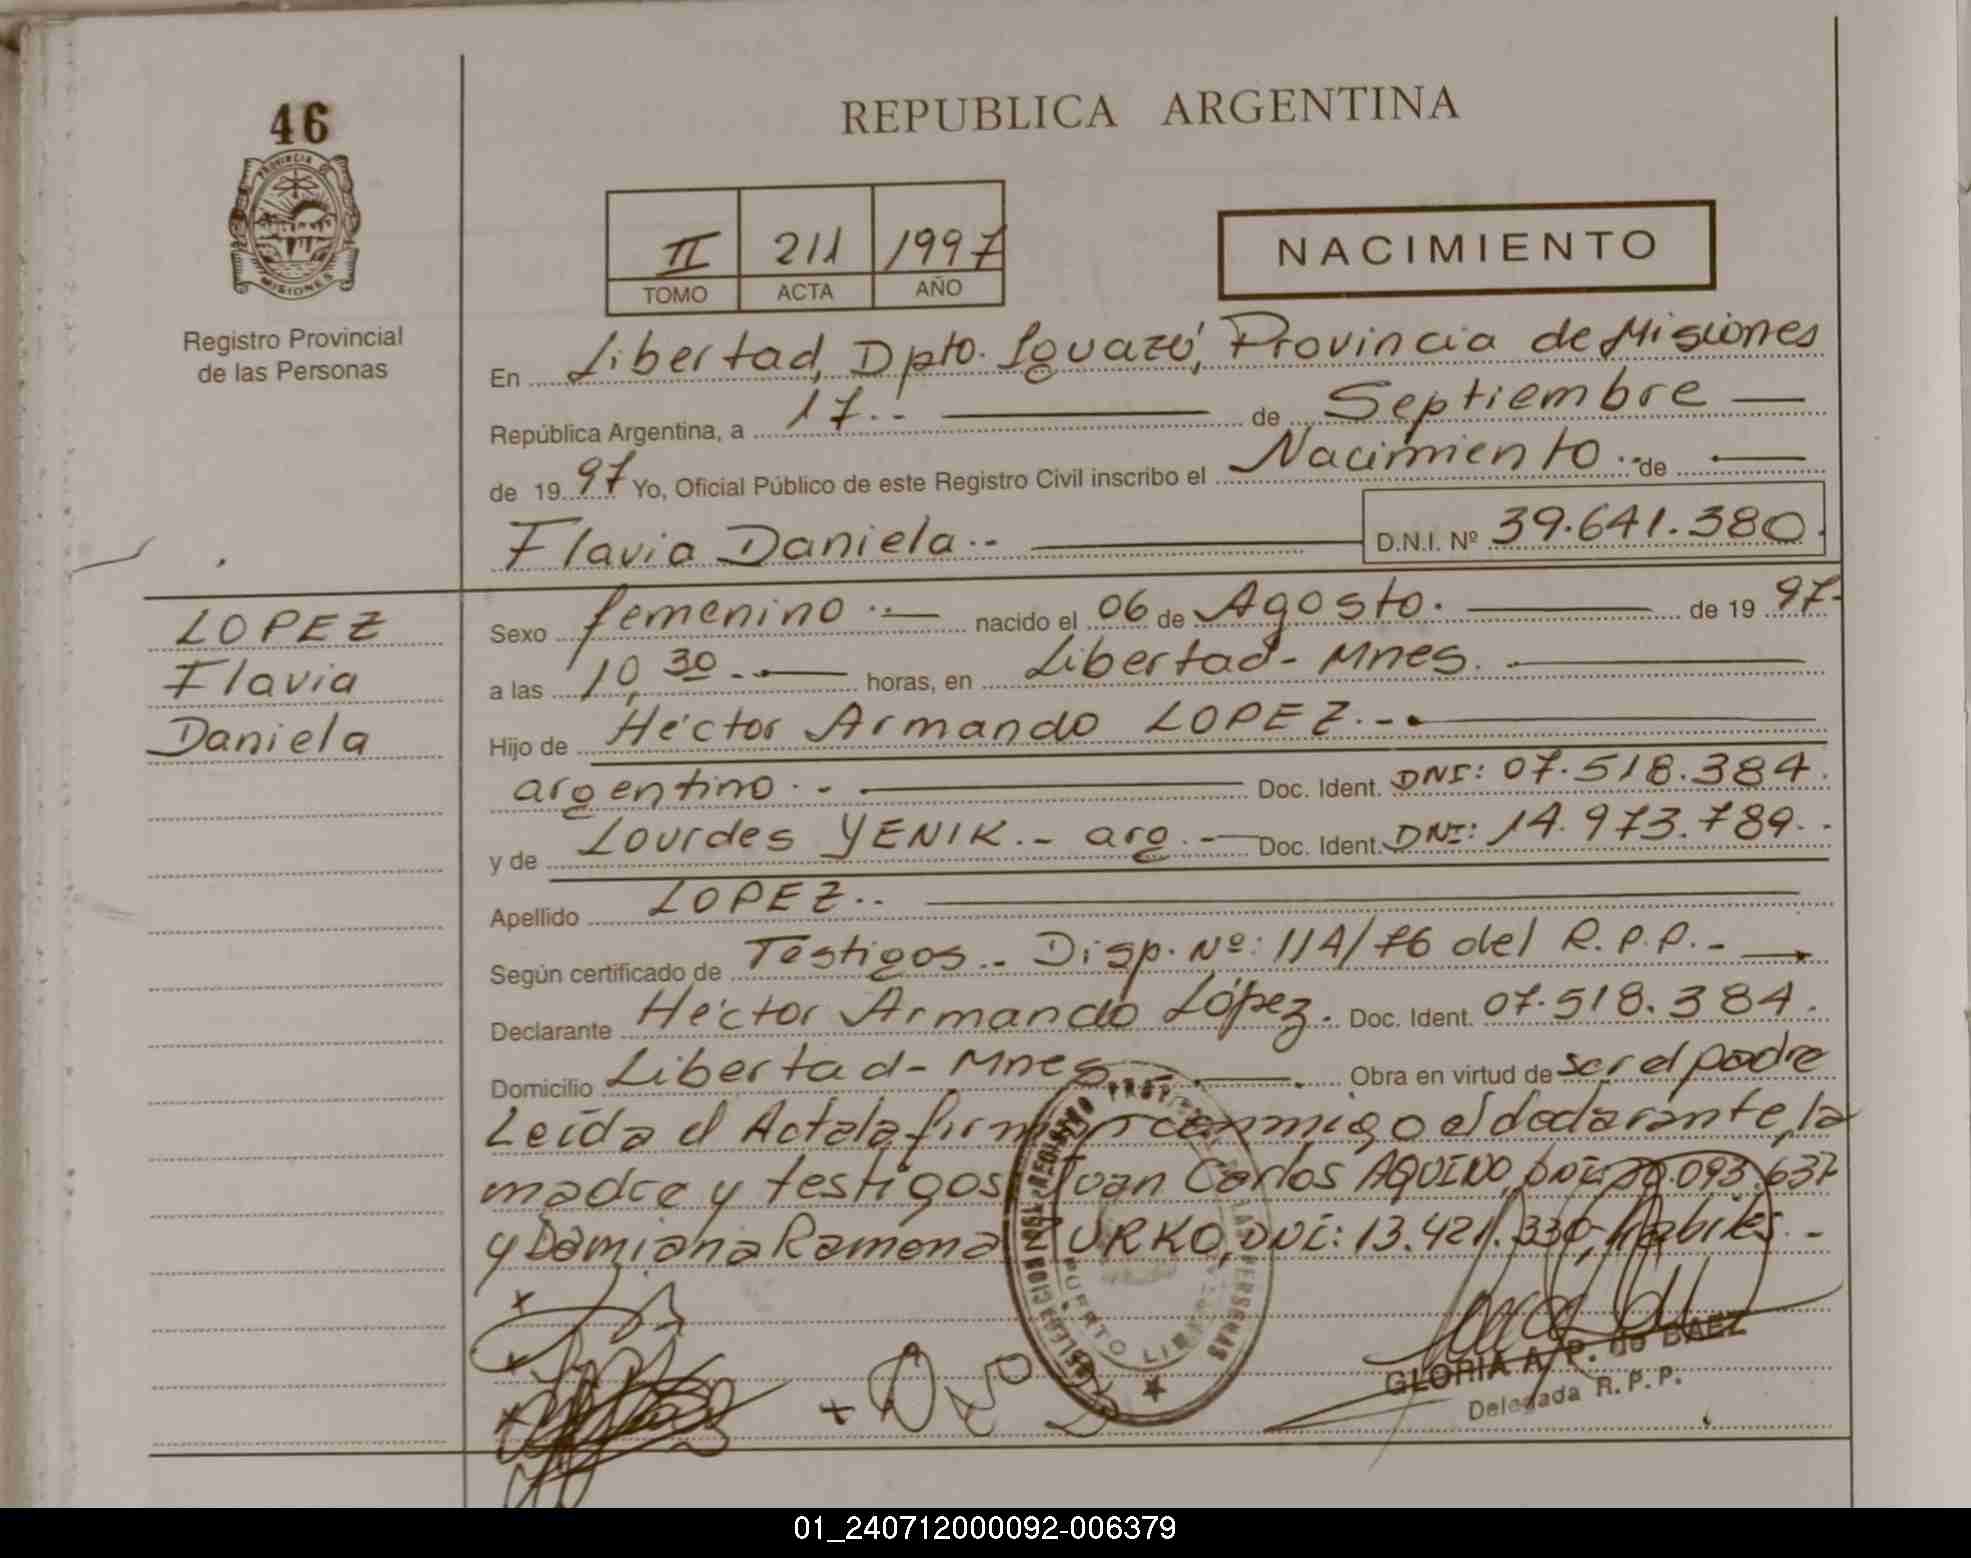 46
PROVINCIA
MISIONES
Registro Provincial
de las Personas
REPUBLICA ARGENTINA
II 211 1997
TOMO ACTA AÑO
NACIMIENTO
En Libertad, Dpto. Iguazú, Provincia de Misiones
República Argentina, a 17.- de Septiembre
de 1997 Yo, Oficial Público de este Registro Civil inscribo el Nacimiento.- de
Flavia Daniela.- D.N.I. Nº 39.641.380.
LOPEZ
Flavia
Daniela
Sexo femenino.- nacido el 06 de Agosto. de 1997.
a las 10,30.- horas, en Libertad- Mnes.
Hijo de Héctor Armando LOPEZ.-
argentino.- Doc. Ident. DNI: 07.518.384.
y de Lourdes YENIK.- arg.- Doc. Ident. DNI: 14.973.789.-
Apellido LOPEZ..
Según certificado de Testigos.- Disp. Nº: 114/76 del R.P.P.-
Declarante Héctor Armando López. Doc. Ident. 07.518.384.
Domicilio Libertad- Mnes. Obra en virtud de ser el padre
Leída el Acta la firman conmigo el declarante, la
madre y testigos Juan Carlos AQUINO, DNI: .093.637
y Damiana Ramona TURKO, DNI: 13.421.330, hábiles.-
PUERTO LIBERTAD
GLORIA A. P. de BAEZ
Delegada R. P. P.
01_240712000092-006379